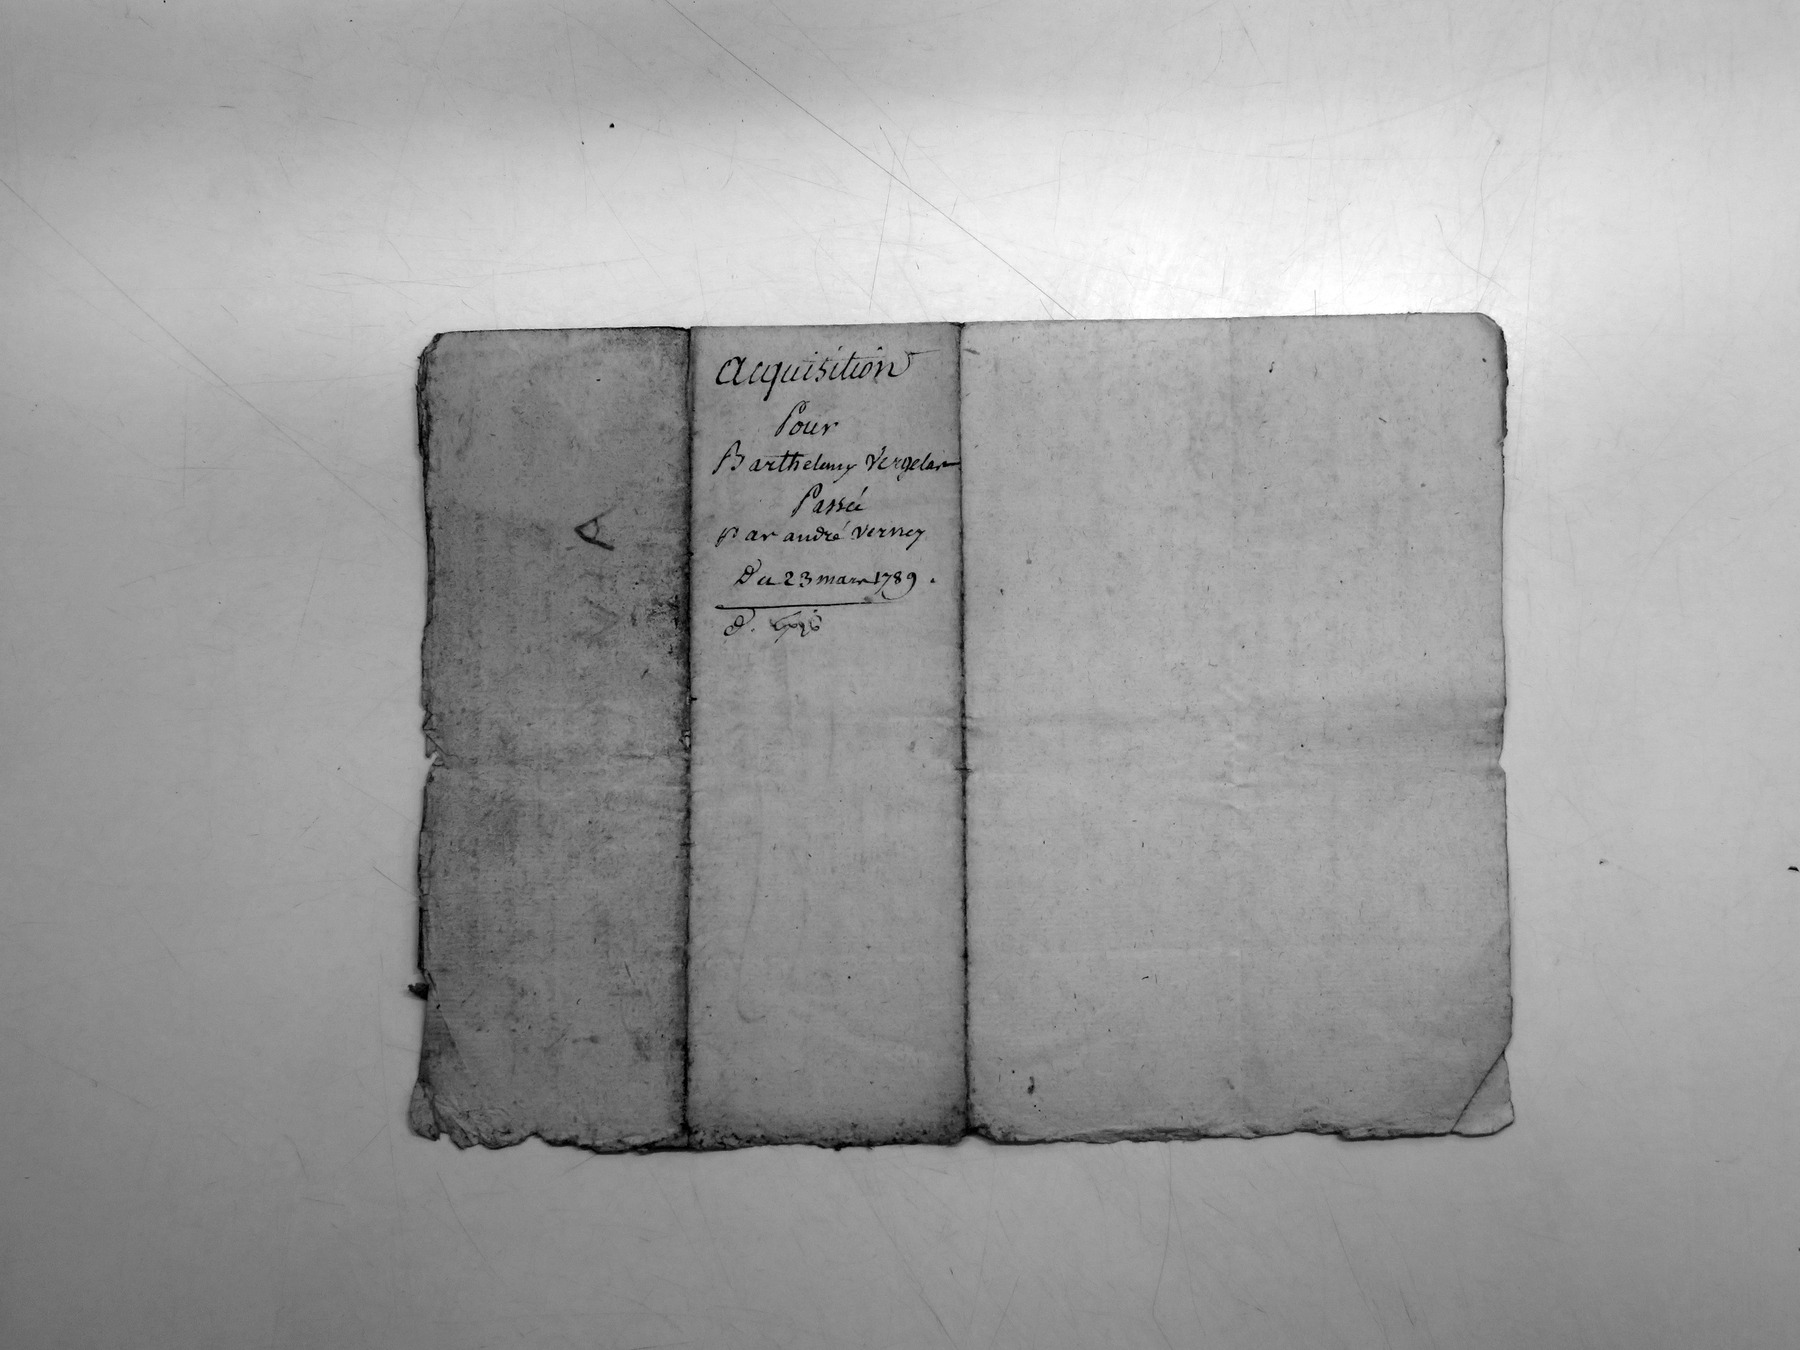 A
acquisition
Pour
Barthelemy Vergelas
Passée
Par andré Verney
Du 23 mars 1789.
d.